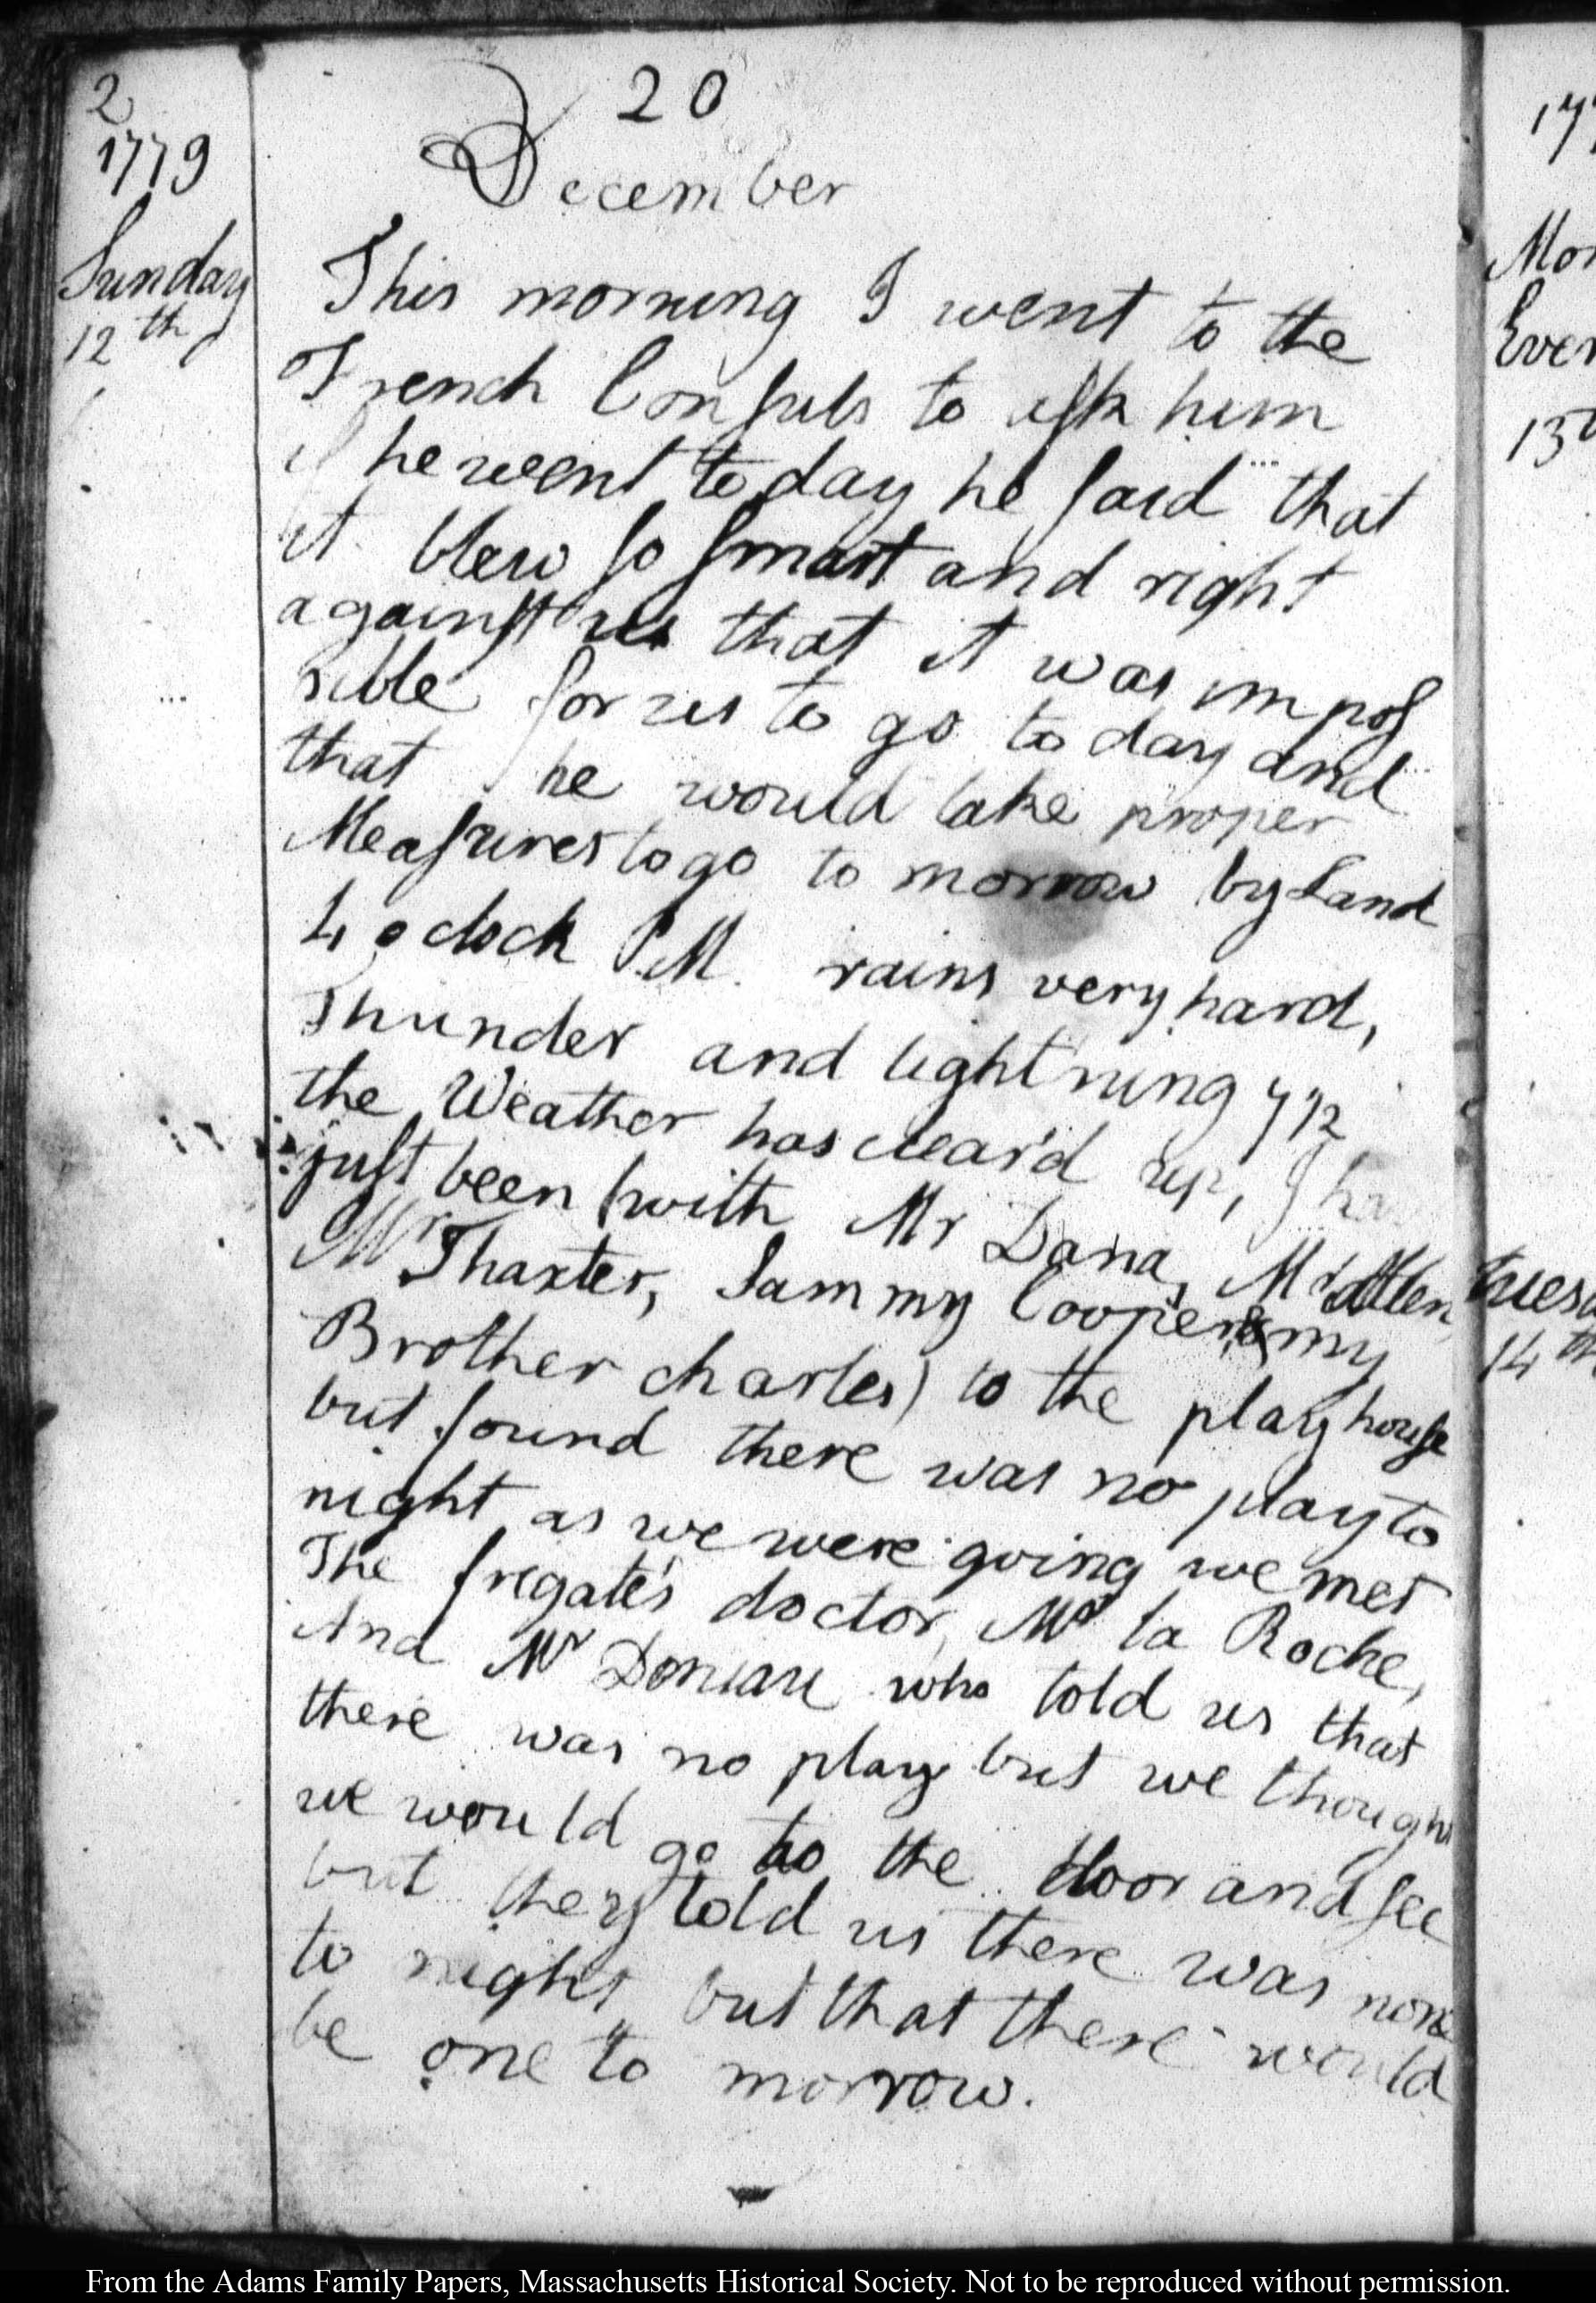 2
20
1779
December
Sunday
12th
This morning I went to the
French Consuls to ask him
if he went to day he said that
it blew so smart and right
against us that it was impos
sible for us to go to day and
that he would take proper
Measures to go to morrow by Land
4 o clock P.M. rains very hard,
Thunder and lightning
the Weather has clear'd up, I ha
just been (with Mr Dana, Mr Allen,
Mr Thaxter, Sammy Cooper & my
Brother charles) to the play house
but found there was no play to
night as we were going we met
The fregate's doctor, Mr la Roche,
And Mr Doniau who told us that
there was no play but we though
we would go to the door and see
but they told us there was none
to night but that there would
be one to morrow.
17
Mon
Even
13t
tuesd
14th
From the Adams Family Papers, Massachusetts Historical Society. Not to be reproduced without permission.